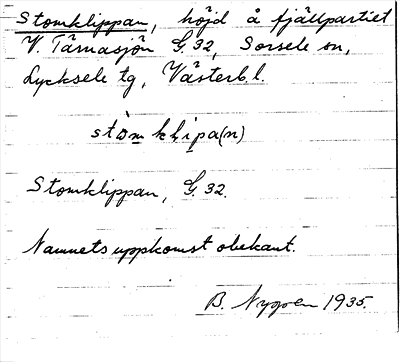 Stomklippan, höjd å fjällpartiet
V. Tärnasjön G.32, Sorsele sn,
Lycksele tg, Västerb.l.
stòm klipa(n)
Stomklippan, G. 32.
Namnets uppkomst obekant.
B. Nygren 1935.